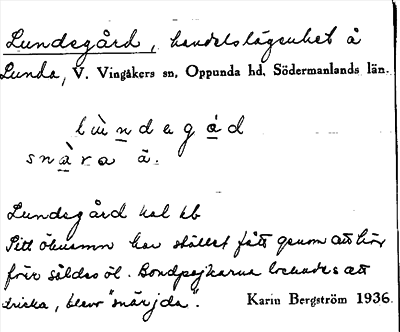 Lundsgård, handelslägenhet å
Lunda, V. Vingåkers sn, Oppunda hd, Södermanlands län.
lùndagád
snàra ä.
Lundsgård hal kb
Sitt öknamn har stället fått genom att här
förr såldes öl. Bondpojkarna lockades att
dricka, blevo "snärjda". Karin Bergström 1936.